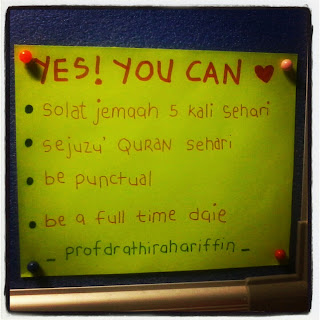 YES! YOU CAN ♥
• solat jemaah 5 kali sehari
• sejuzu' QURAN sehari
• be punctual
• be a full time daie
_ profdrathirahariffin _